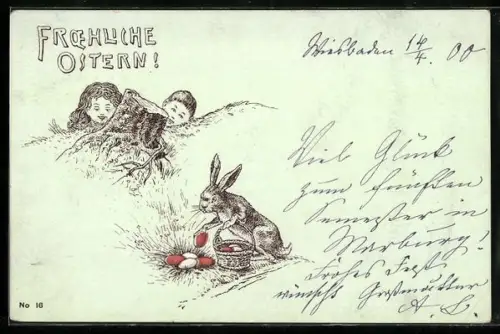 FROEHLICHE
OSTERN!
Wiesbaden 14/4. 00
Viel Glück
zum fünften
Semester in
Marburg!
Frohes Fest
wünscht Großmutter
A. L.
No 16